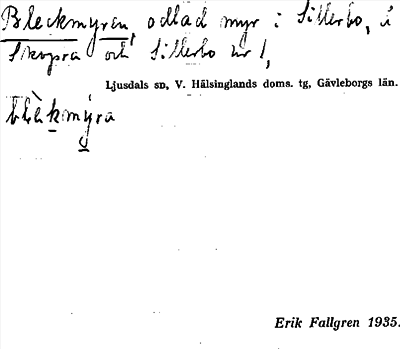 Bleckmyren, odlad myr i Sillerbo, å
Skopra och Sillerbo nr 1,
Ljusdals sn, V. Hälsinglands doms. tg, Gävleborgs län.
blèkmýra
Erik Fallgren 1935.